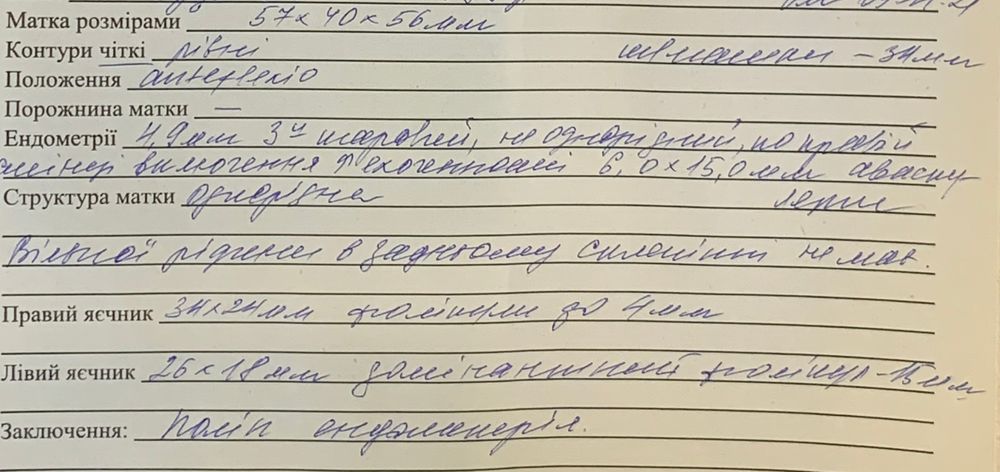 Матка розмірами 57 х 40 х 56 мм
Контури чіткі рівні шийматки – 34мм
Положення антефлексіо
Порожнина матки —
Ендометрії 4,9мм 3х шаровий, неоднорідний, по правій
стінці включення ↑ ехогенності 6,0 х 15,0 мм аваску
Структура матки однорідна лярне
Вільної рідини в задньому склепінні немає.
Правий яєчник 34х24мм фолікули до 4мм
Лівий яєчник 26 х 18мм домінантний фолікул – 15мм
Заключення: Поліп ендометрія.